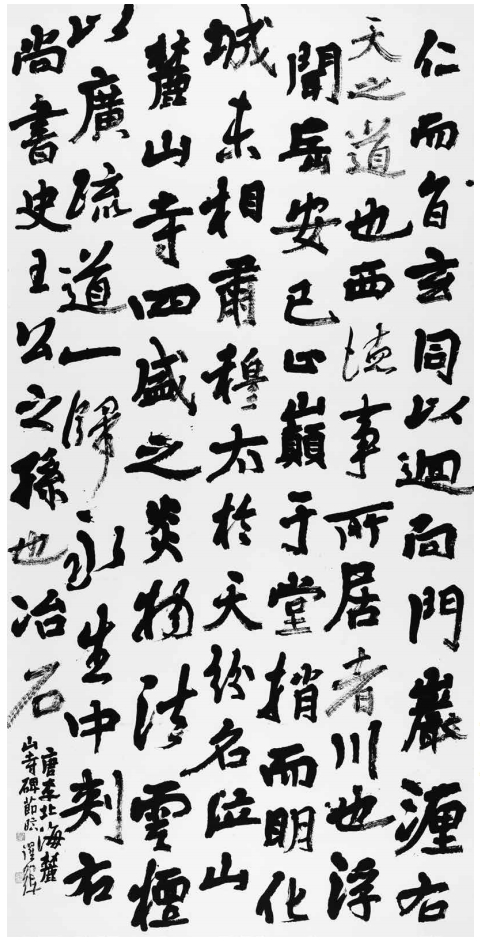 仁而自玄同以迴向門巖湮右
天之道也西憶事所居者川也浮
聞岳安已山巔于堂捎而明化
城未相爾穆太於天紛名位山
麓山寺四盛之炎物法雲檀
以廣疏道一歸永生中刻右
尚書史王公之孫也冶石
唐李北海麓
山寺碑節臨